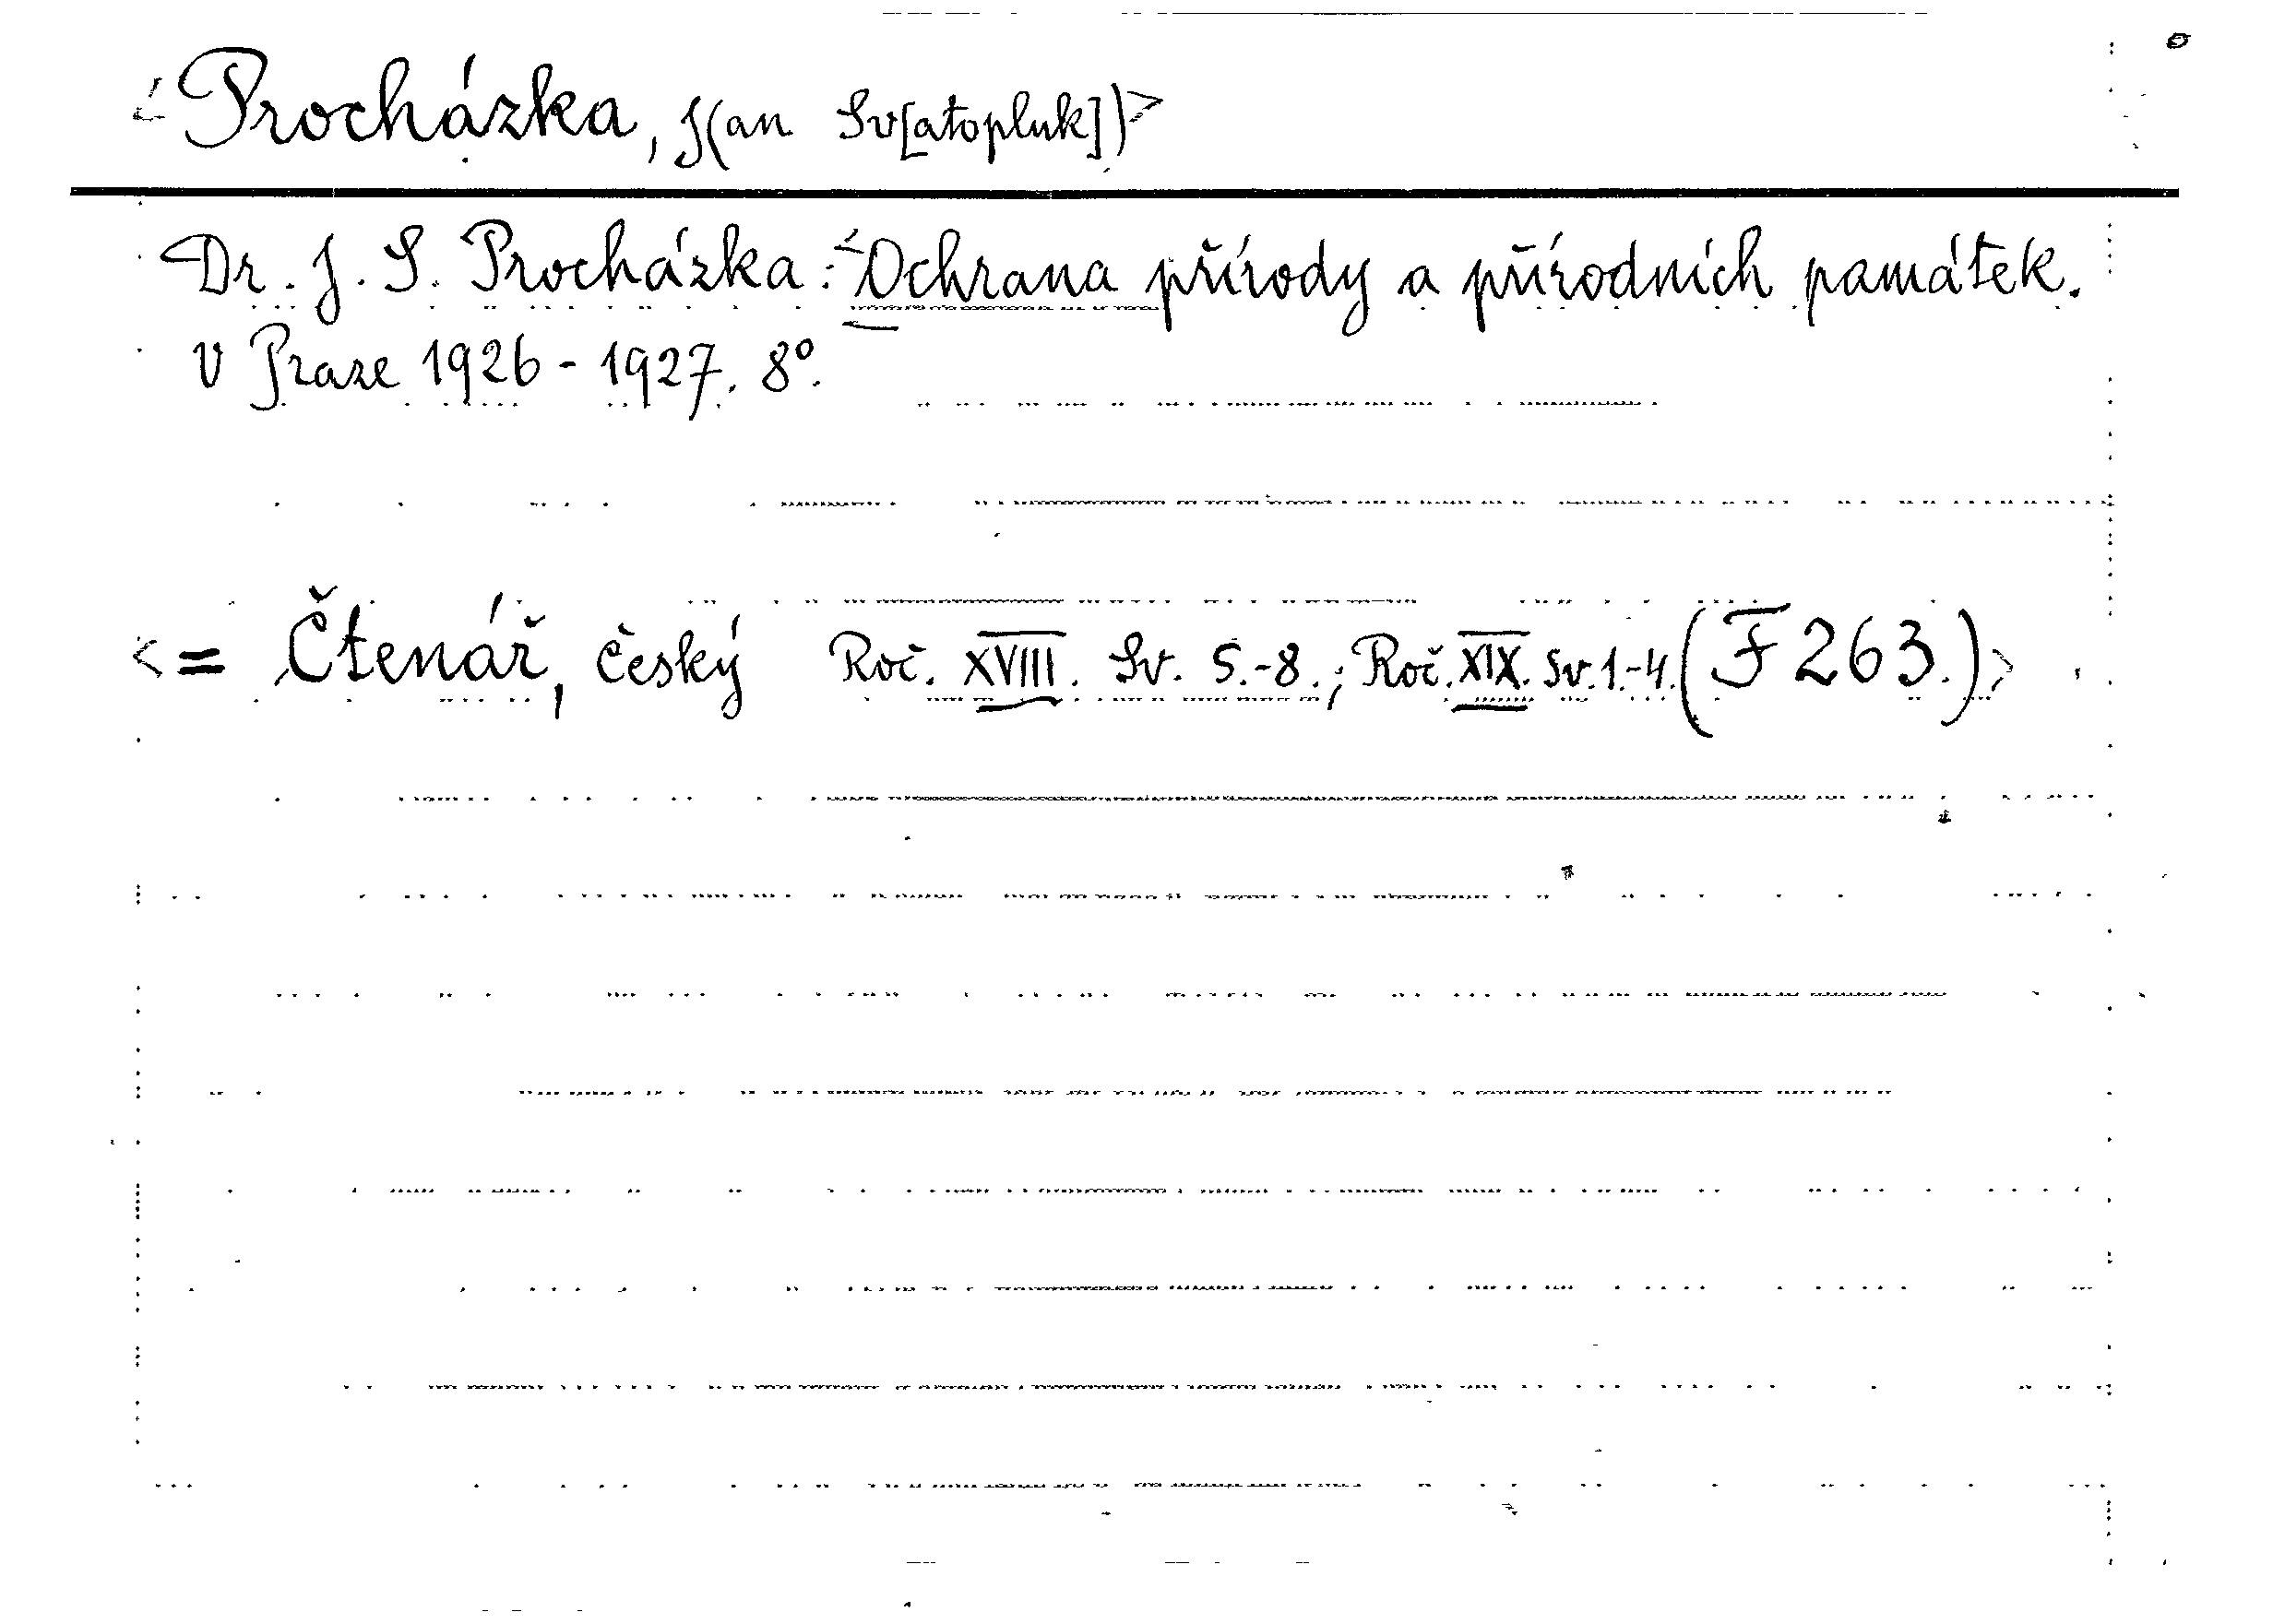 <Procházka, J(an Sv[atopluk])>
Dr. J. S. Procházka: Ochrana přírody a přírodních památek.
V Praze 1926-1927. 8°.
<= Čtenář, český Roč. XVIII. Sv. 5.-8.; Roč. XIX. Sv. 1.-4. (F 263.)>